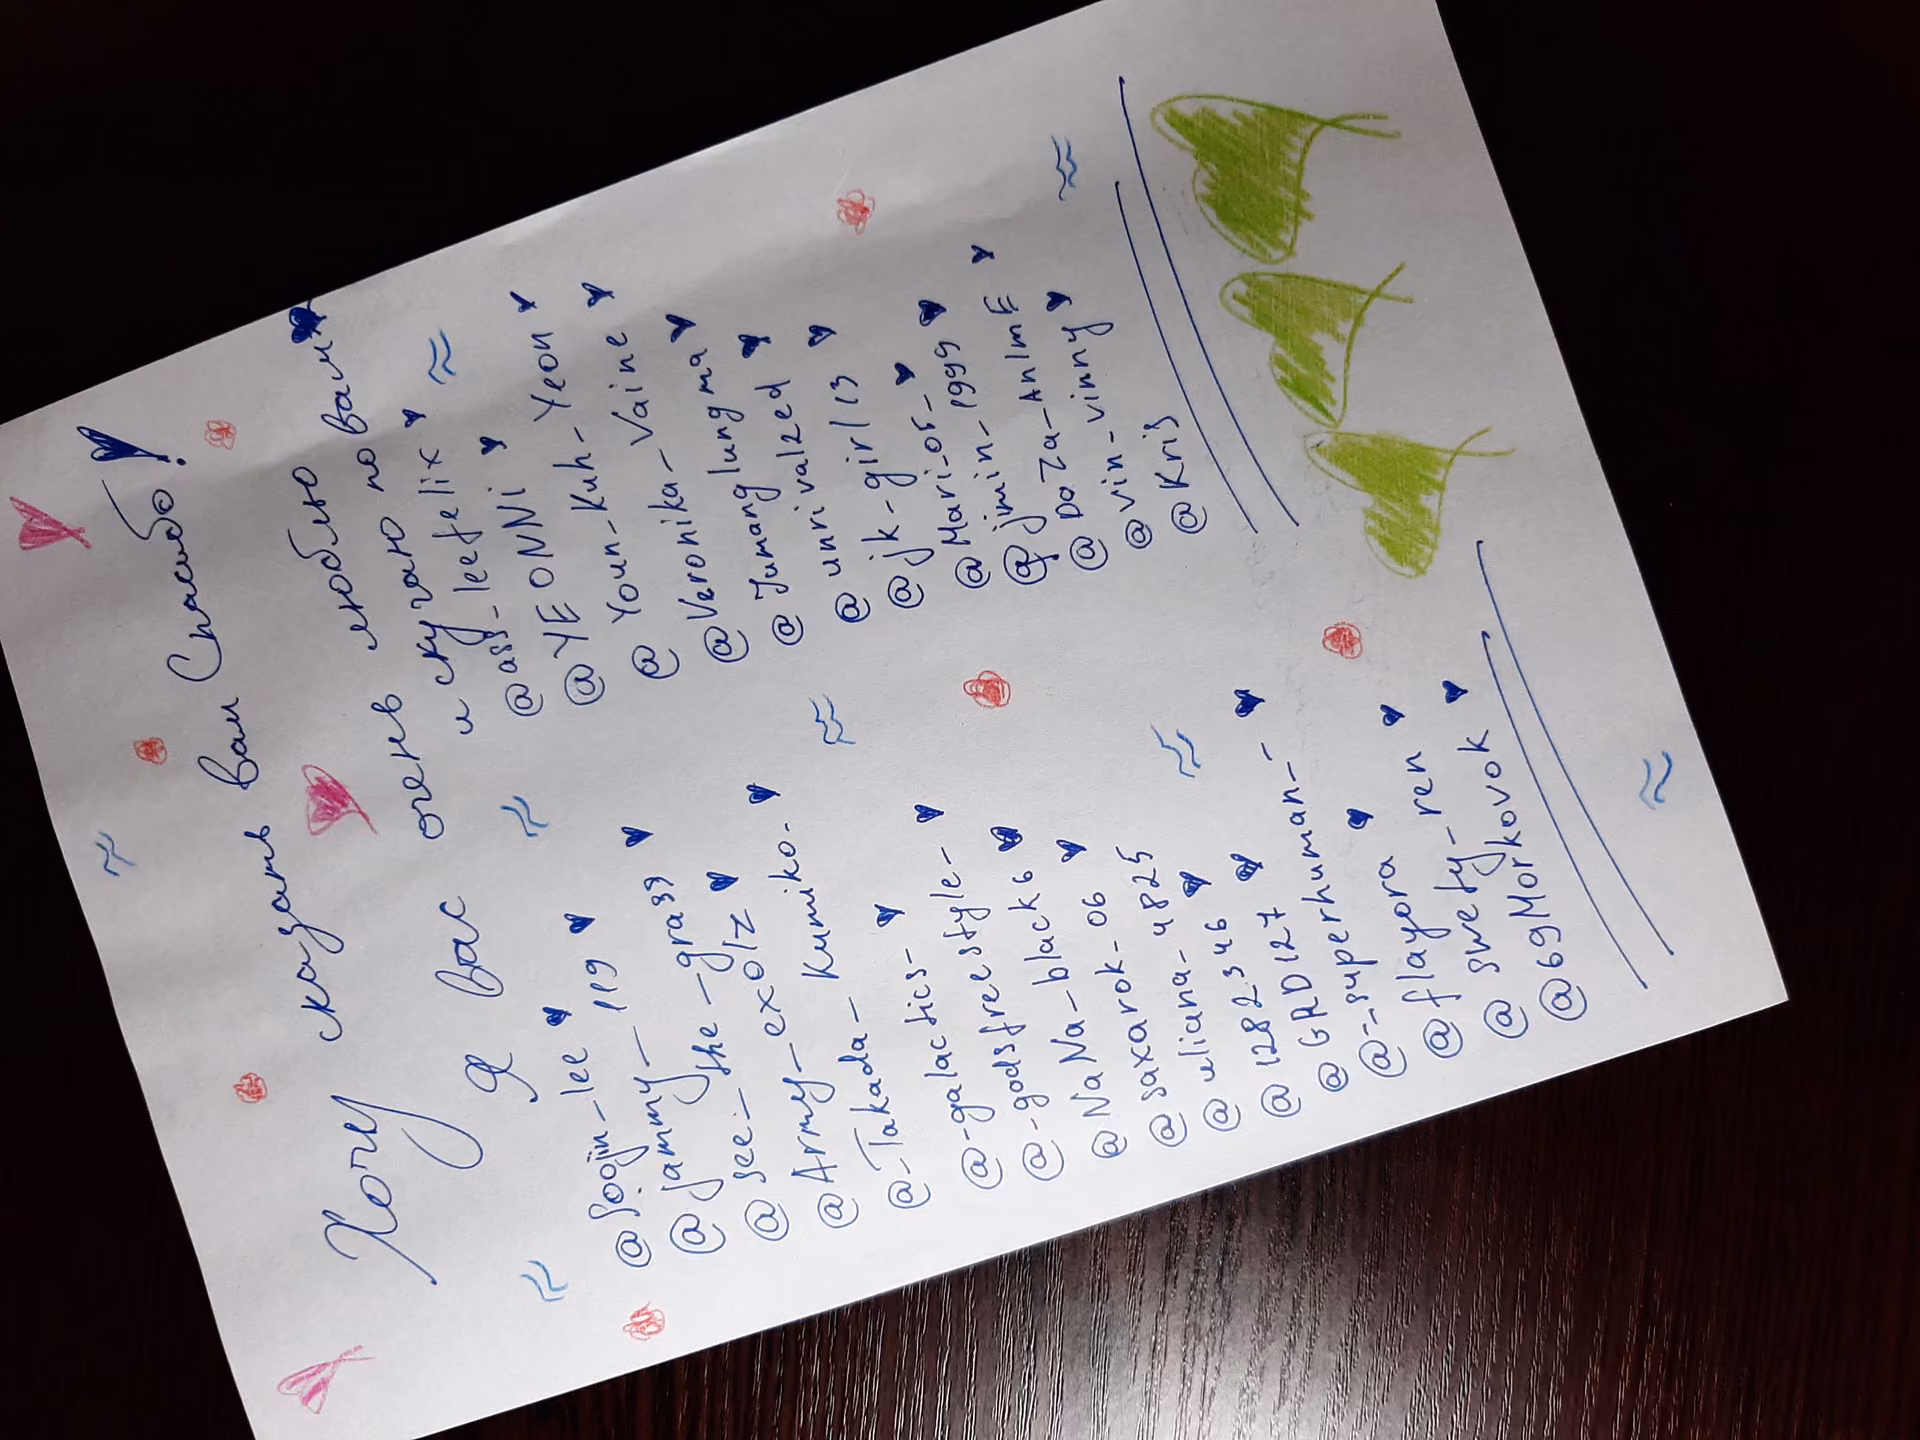 Хочу сказать вам Спасибо!
Я вас очень люблю
и скучаю по вам
@Soojin_lee_119
@jammy_she_grass
@see_-exolz
@Army_
@-Takada_Kumiko.
@-galactics-
@-godsfreestyle-
@NaNa_black6
@saxarok_06
@uliana_4825
@1282346
@GRD127
@-_superhuman_-
@flayora
@swety_ren
@69Morkovok
@ass_leefelix
@YEONNi
@Youn_Kuh_Yeon
@Veronika_Vaine
@Jumanglungma
@unrivalzed
@jk_girl13
@Mari_05_
@jimin_1999
@DaZa_AnImE
@vin_vinny
@Kris